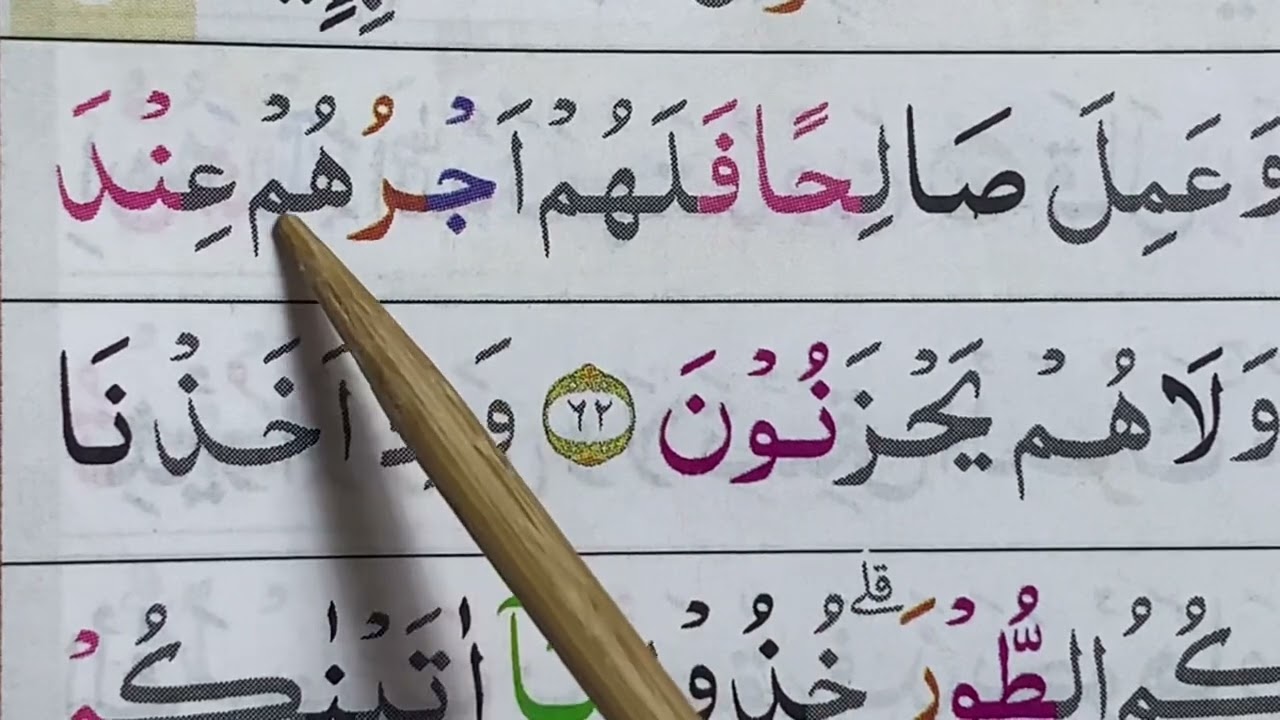 وَعَمِلَ صَالِحًا فَلَهُمْ اَجْرُهُمْ عِنْدَ
وَلَا هُمْ يَحْزَنُوْنَ ٦٢ اَخَذْنَا
كُمُ الطُّوْرَ ۗ خُذُوْا اٰتَيْنٰكُمْ